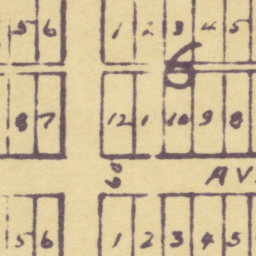 5 6 1 2 3 4 5
6
8 7 12 1 10 9 8
60
AV
5 6 1 2 3 4 5